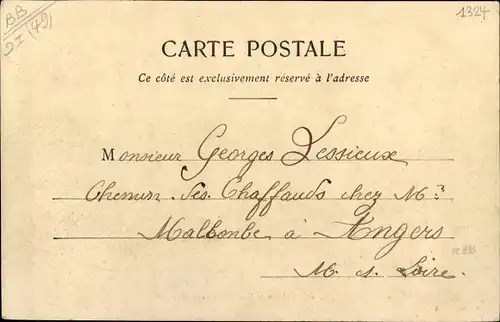 BB
91 (49)
1324
CARTE POSTALE
Ce côté est exclusivement réservé à l'adresse
Monsieur Georges Lessieux
Chemin des Chaffauds chez Mr
Malbonbe à Angers
M. s. Loire.